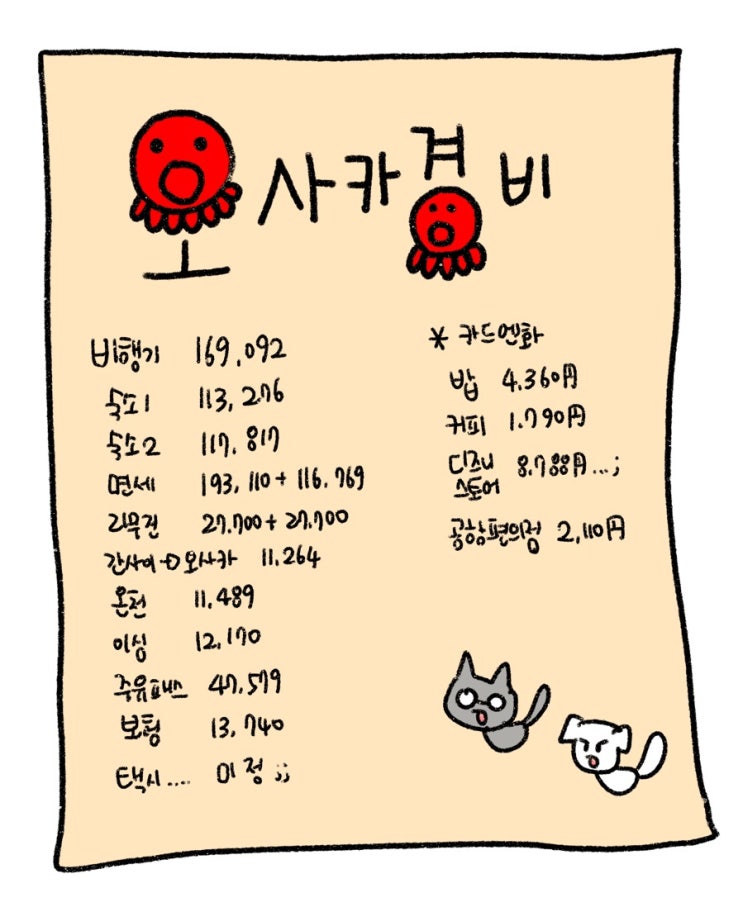 오사카경비
비행기 169,092
숙소1 113,276
숙소2 117,817
면세 193,110 + 116,769
리무진 27,700 + 27,700
간사이→오사카 11,264
온천 11,489
이심 12,170
주유패스 47,579
보험 13,740
택시.... 미정;;
* 카드엔화
밥 4,360円
커피 1,790円
디즈니 8,788円...;
스토어
공항편의점 2,110円